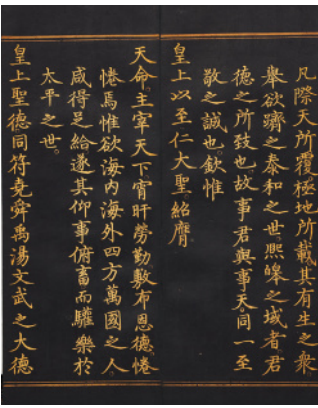 凡際天所覆極地所載其有生之衆
舉欲躋之泰和之世熙皞之域者君
德之所致也故事君與事天同一至
敬之誠也欽惟
皇上以至仁大聖紹膺
天命主宰天下宵旰勞勤敷布恩德惓
惓焉惟欲海内海外四方萬國之人
咸得足給遂其仰事俯畜而驩樂於
太平之世
皇上聖德同符堯舜禹湯文武之大德